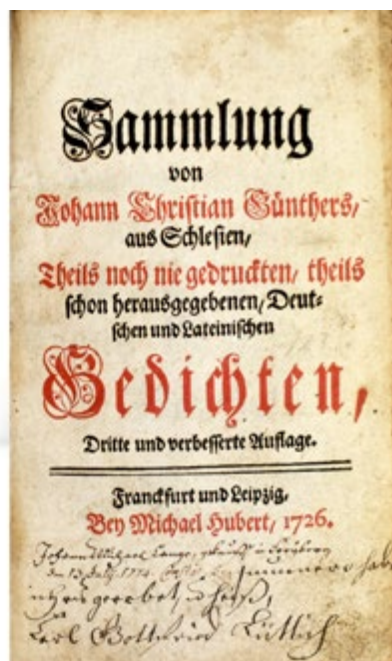 Sammlung
von
Johann Christian Günthers,
aus Schlesien,
Theils noch nie gedruckten, theils
schon herausgegebenen, Deut-
schen und Lateinischen
Gedichten,
Dritte und verbesserte Auflage.
Franckfurt und Leipzig,
Bey Michael Hubert, 1726.
Johann
den 13
Carl Gottfried